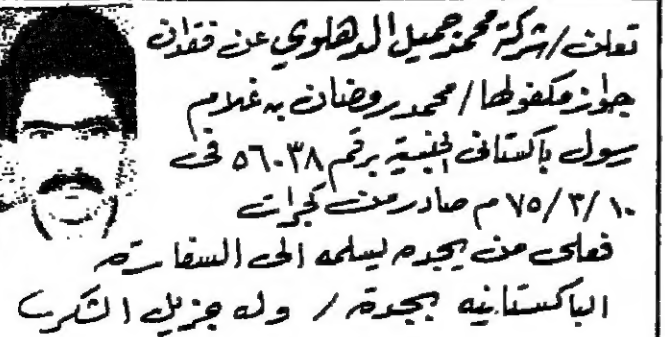 تعلن / شركة محمد جميل الدهلوي عن فقدان
جواز مكفولها / محمد رمضان بن غلام
رسول باكستاني الجنسية برقم ٥٦٠٣٨ في
١٠/٣/٧٥ م صادر من كجرات
فعلى من يجده يسلمه الى السفارة
الباكستانيه بجدة / وله جزيل الشكر